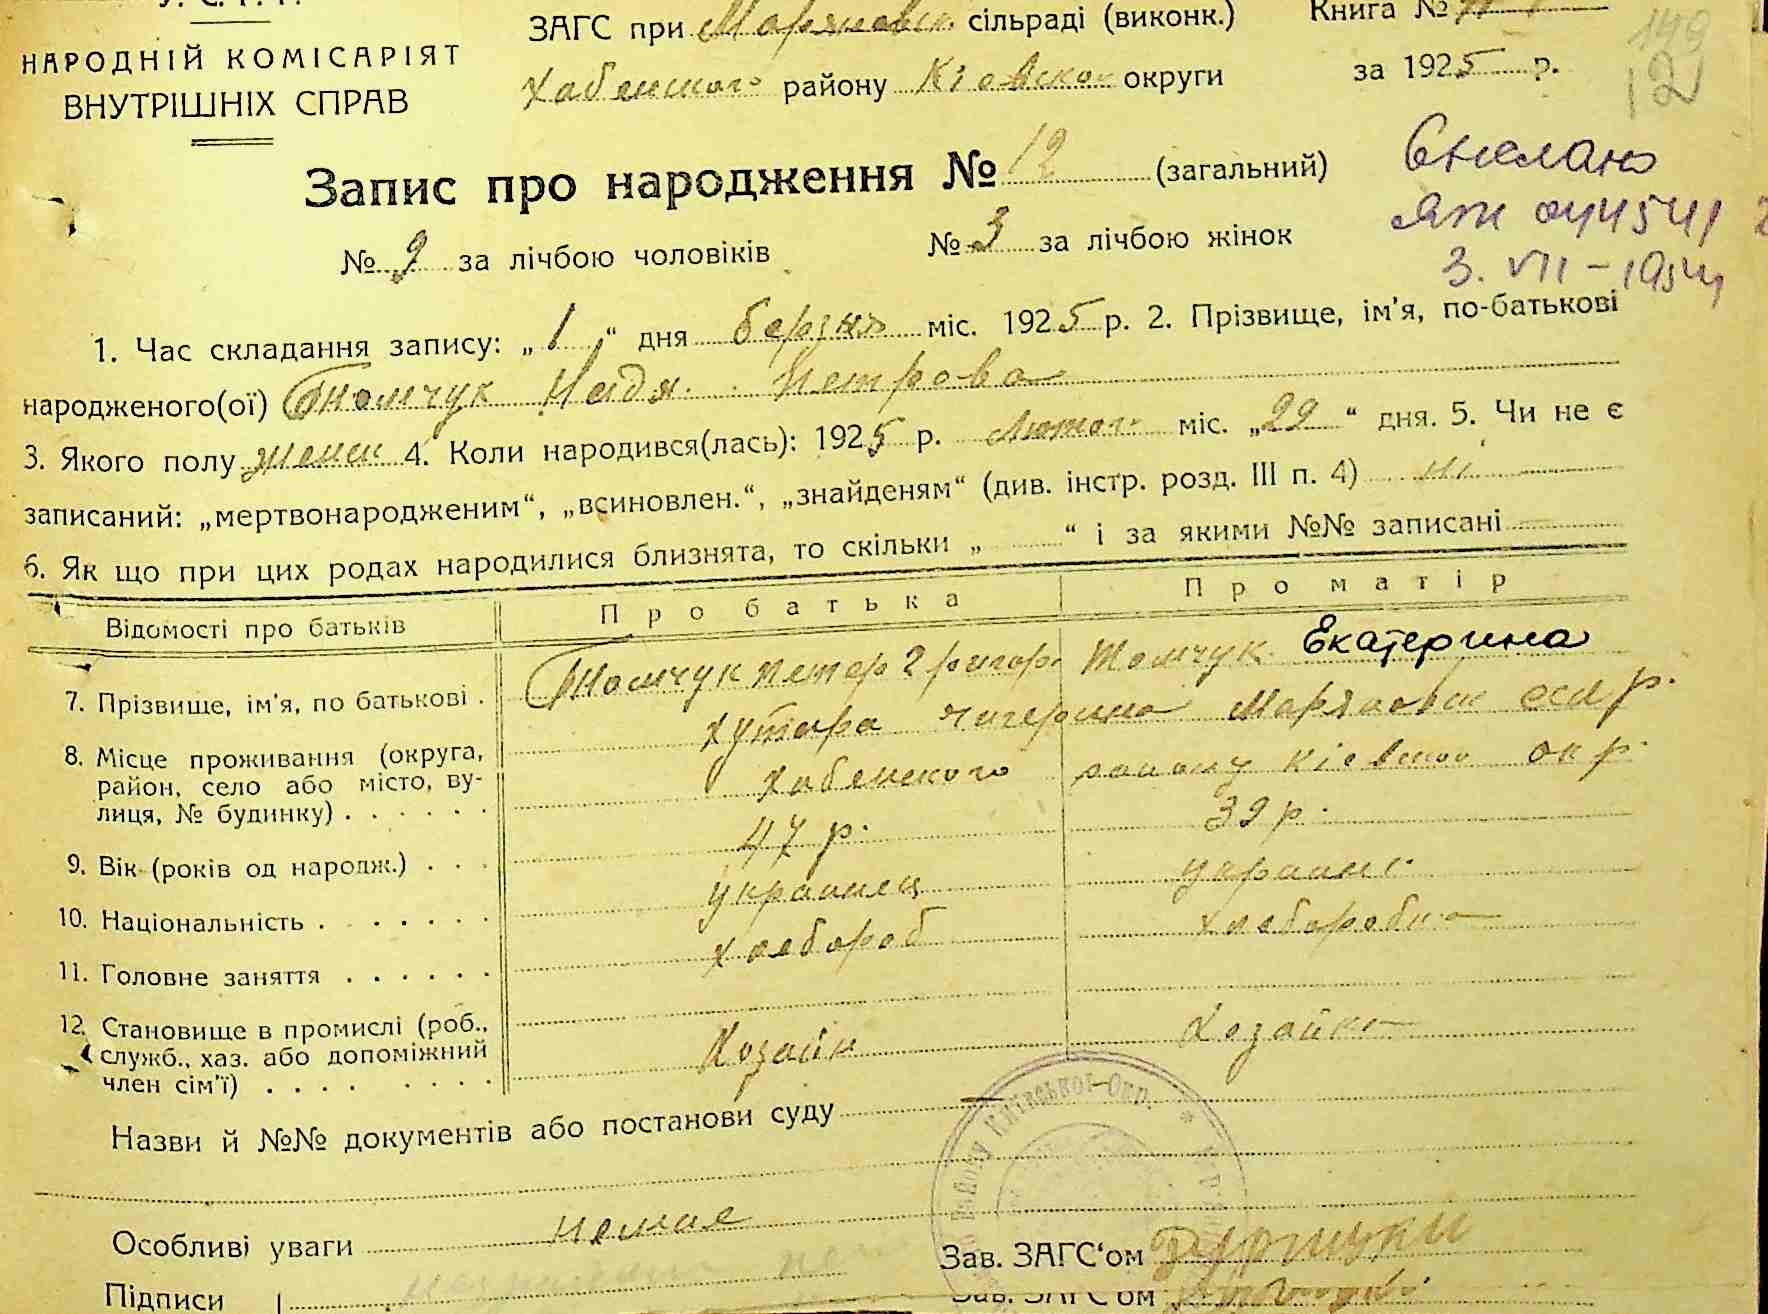 У. С. Р. Р.
НАРОДНІЙ КОМІСАРІЯТ
ВНУТРІШНІХ СПРАВ
ЗАГС при Маряновск сільраді (виконк.) Книга №
Хабенского району Кіевской округи за 1925 р.
149
12
Запис про народження № 12 (загальний)
№ 9 за лічбою чоловіків № 3 за лічбою жінок
3. VII - 1954
1. Час складання запису: „1“ дня березня міс. 1925 р. 2. Прізвище, ім’я, по-батькові
народженого(ої) Томчук Надя Петрова
3. Якого полу женск 4. Коли народився(лась): 1925 р. Лютого міс. „22“ дня. 5. Чи не є
записаний: „мертвонародженим“, „всиновлен.“, „знайденям“ (див. інстр. розд. III п. 4) ні
6. Як що при цих родах народилися близнята, то скільки „ “ і за якими №№ записані
Відомості про батьків Про батька Про матір
7. Прізвище, ім’я, по батькові . Томчук Петер Григор. Томчук Екатерина
8. Місце проживання (округа, район, село або місто, вулиця, № будинку) . . . . . . хутора Чигерино Маряновск сел р.
Хабенского району Кіевской окр.
9. Вік (років од народж.) . . . 47 р. 39 р.
10. Національність . . . . . . украинец украинс
11. Головне заняття . . . . . . хлебороб хлеборобка
12. Становище в промислі (роб., служб., хаз. або допоміжний член сім’ї) . . . . . . . . Хозаин Хозайка
Назви й №№ документів або постанови суду
Особливі уваги немае
Зав. ЗАГС‘ом
Підписи
Зав. ЗАГС‘ом